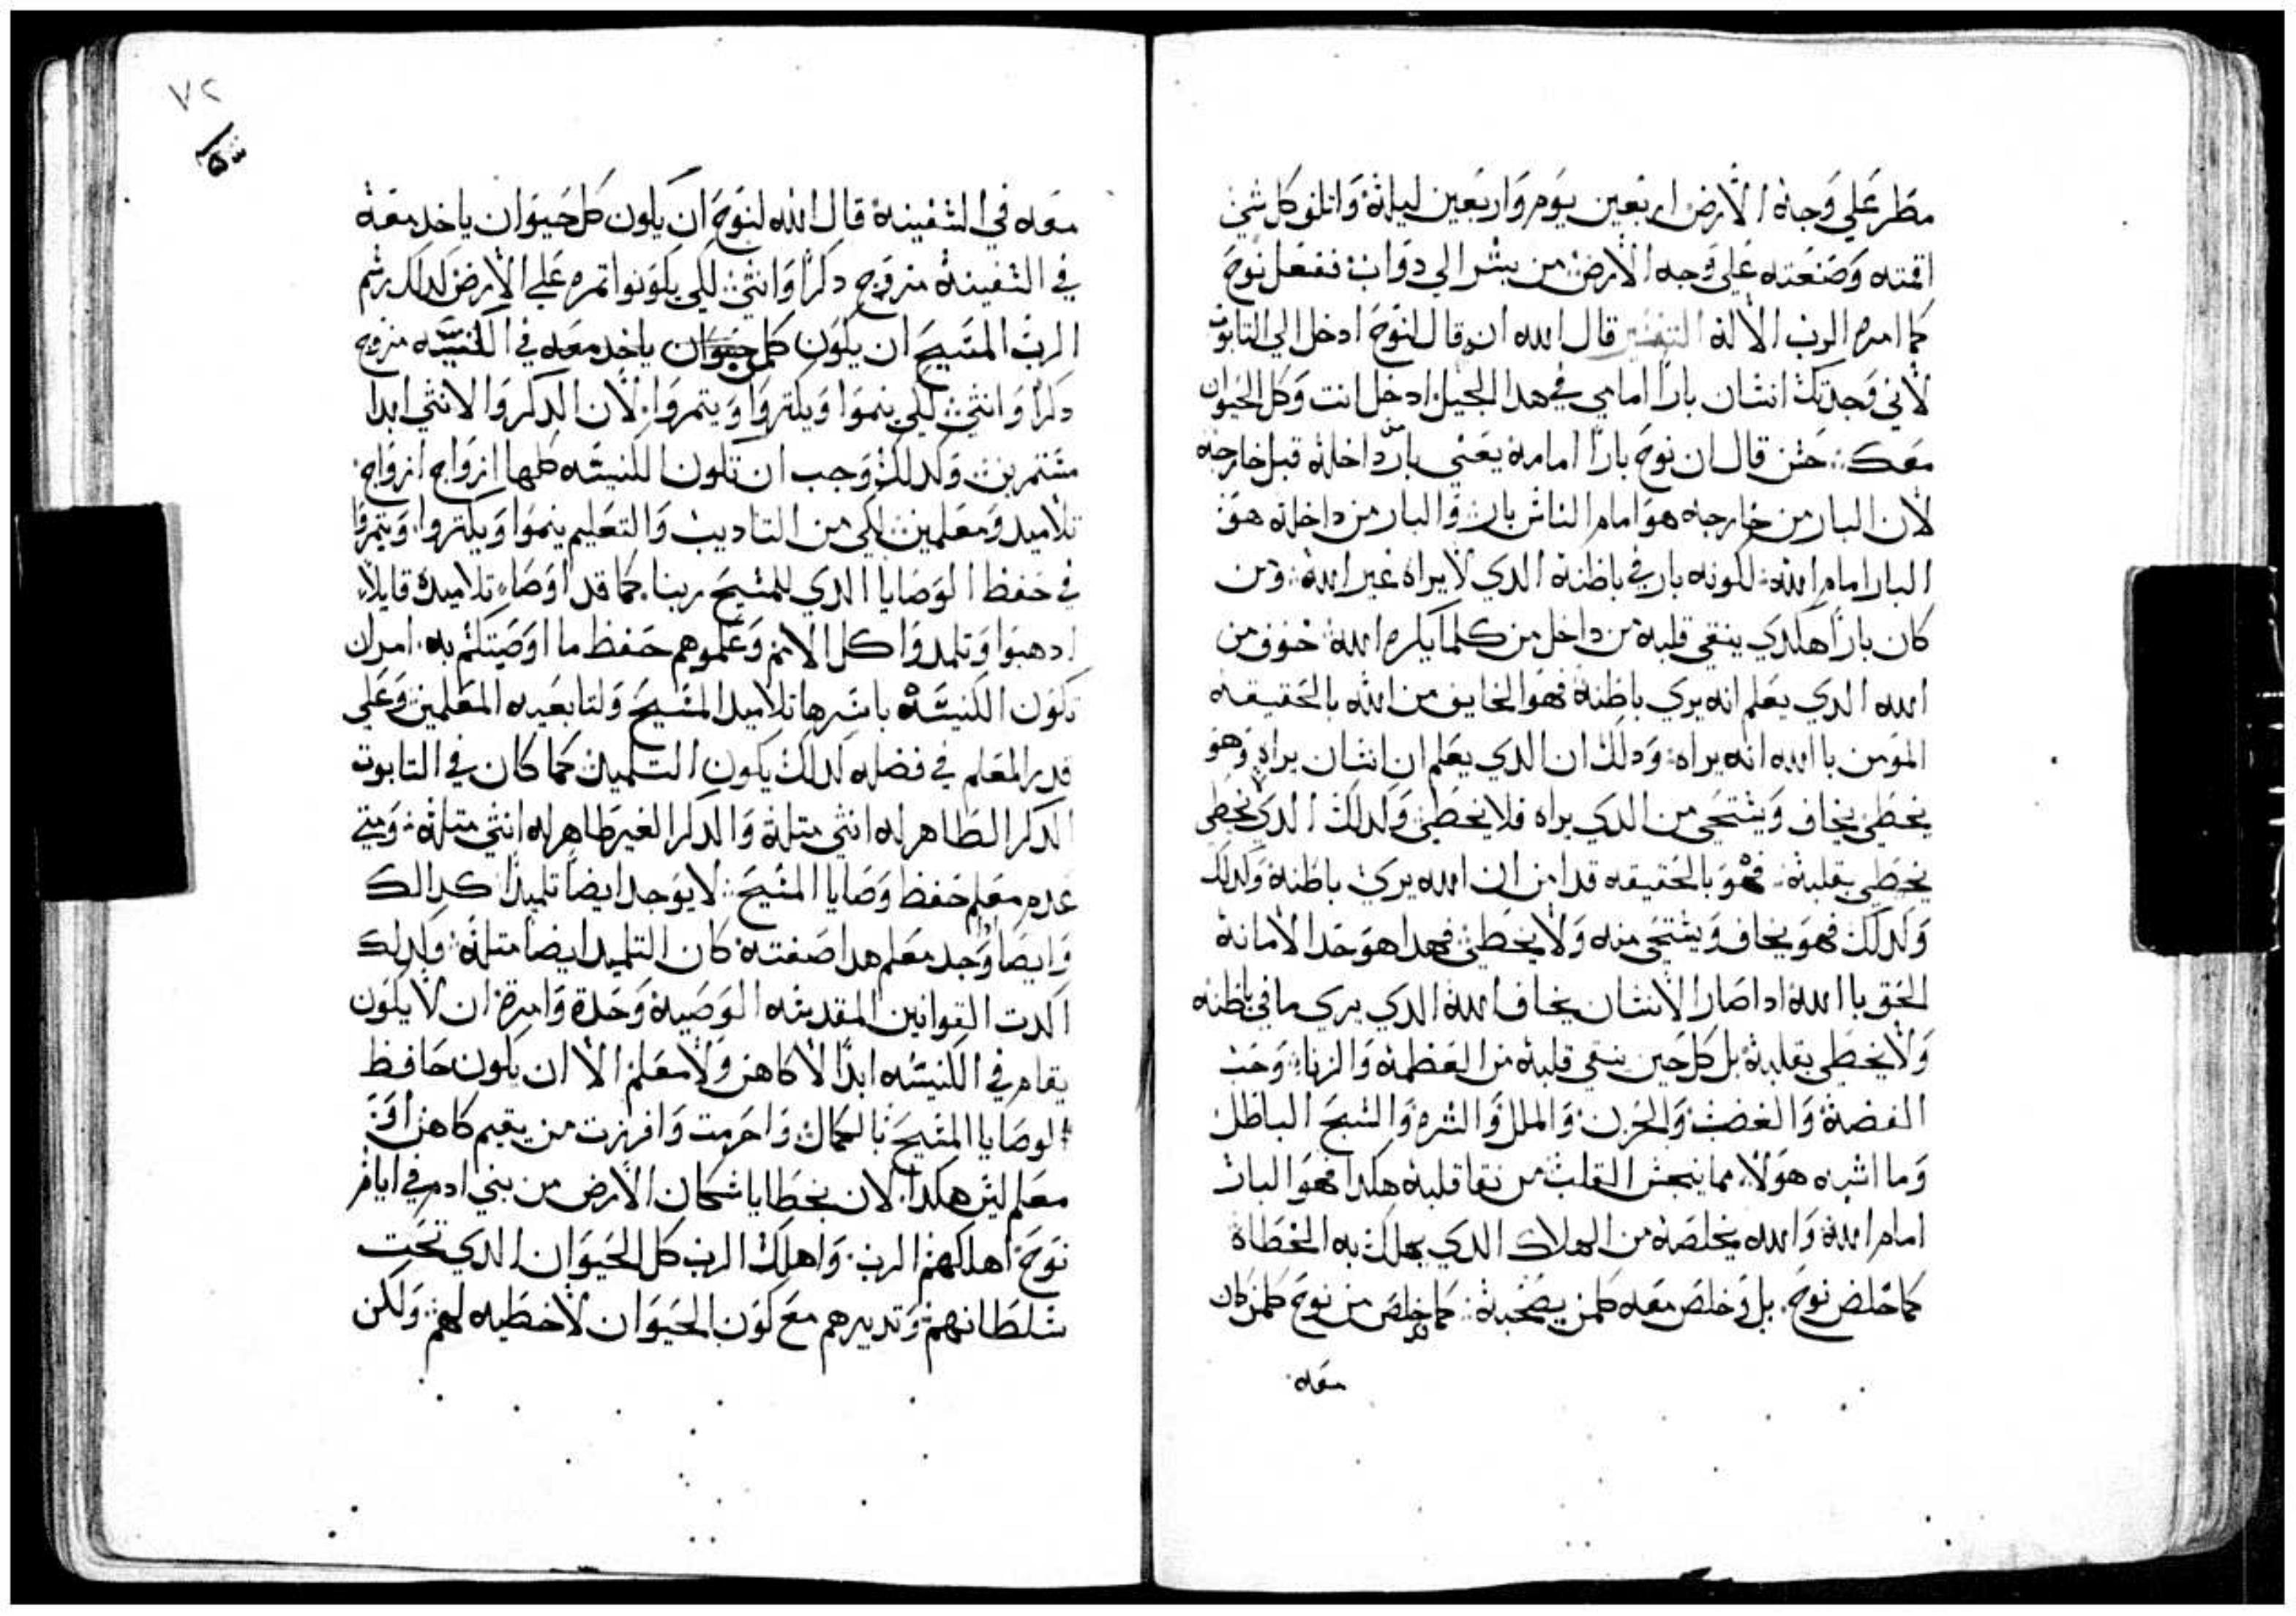 مطر علي وجه الارض اربعين يوم واربعين ليلة واتلف كل شي
اقمته وصنعته علي وجه الارض من بشر الي دواب ففعل نوح
كما امره الرب الاله التفسير قال الله ان قال لنوح ادخل الي التابوت
لاني وجدتك انسان باراً امامي في هدا الجيل ادخل انت وكل الحيوان
معك حسن قال ان نوح باراً امامه يعني بار من داخله قبل خارجه
لان البار من خارجه هو امام الناس بار والبار من داخله هو
البار امام الله لكونه بار في باطنه الدي لا يراه غير الله ومن
كان باراً هكدي ينقي قلبه من داخل من كلما يكره الله خوف من
الله الدي يعلم انه يري باطنه فهو الخايف من الله بالحقيقه
المومن باالله انه يراه ودلك ان الدي يعلم ان انسان يراه وهو
يخطي يخاف ويستحي من الدي يراه فلا يخطي وكدلك الدي لا يخطي
يخطي بقلبه فهو بالحقيقه قد امن ان الله يري باطنه وكدلك
ولدلك فهو يخاف ويستحي منه ولا يخطي فهدا هو حد الامانة
الحق باالله ادا صار الانسان يخاف الله الدي يري ما في باطنه
ولا يخطي بقلبه بل كل حين ينقي قلبه من العظمه والزنا وحب
الفضة والغضب والحزن والملل والشره والسبح الباطل
وما اشبه هولاء مما ينجس القلب من نقا قلبه هكدا فهو البار
امام الله والله يخلصه من الهلاك الدي يهلك به الخطاة
كما خلص نوح بل وخلص معه كلمن يصحبه كما خلص من نوح كلمن كان
معه
٧٢
معه في السفينه قال الله لنوح ان يكون كل حيوان ياخد معه
في السفينة من زوج دكراً وانثي لكي يكونوا تمره علي الارض كدلك رسم
الرب المسيح ان يكون كلمن ياخد معه في الكنيسه من زوج
دكراً وانثي لكي ينموا ويكتروا ويتمروا لان الدكر والانثي ابدا
مستمرين وكدلك وجب ان تكون الكنيسه كلها ازواج ازواج
تلاميد ومعلمين لكي من التاديب والتعليم ينموا ويكتروا ويتمروا
في حفظ الوصايا الدي للمسيح ربنا كما قد اوصا تلاميده قايلاً
ادهبوا وتلمدوا كل الامم وعلموهم حفظ ما اوصيتكم به امر ان
تكون الكنيسه باسرها تلاميد المسيح ولتابعيه المعلمين وعلي
قدر المعلم في فضله كدلك يكون التلميد كما كان في التابوت
الدكر الطاهر له انثي متله والدكر الغير طاهر له انثي متله ومتي
عدم معلم حفظ وصايا المسيح لا يوجد ايضاً تلميداً كدالك
وايضا وجد معلم هدا صفته كان التلميد ايضا متله ولدلك
اكدت القوانين المقدسه الوصية وحدة وامرة ان لا يكون
يقام في الكنيسه ابداً لا كاهن ولا معلم الا ان يكون حافظ
لوصايا المسيح بالكمال واحرمت وافرزت من يقيم كاهن او
معلم ليس هكدا لان بخطايا سكان الارض من بني ادم في ايام
نوح اهلكهم الرب واهلك الرب كل الحيوان الدي تحت
سلطانهم وتدبيرهم مع كون الحيوان لا خطيه لهم ولكن